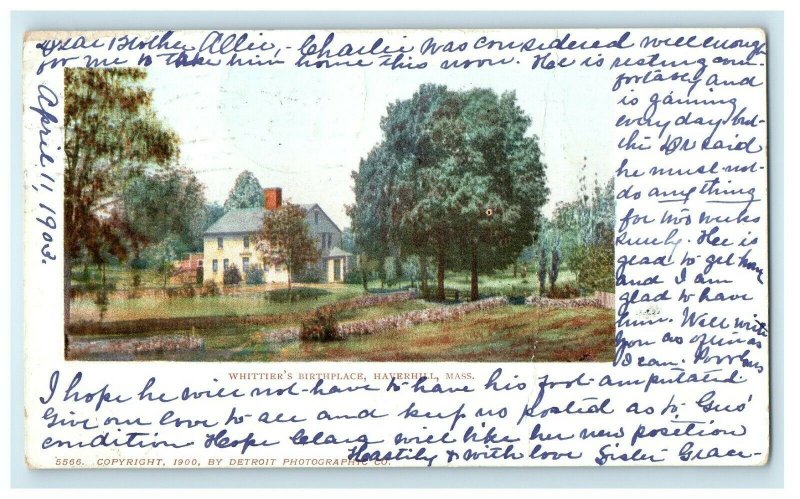 Dear Brother Allie, - Charlie was considered well enough
for me to take him home this noon. Hee is resting com-
fortably and
is gaining
every day but
the Dr said
he must not
do anything
for two weeks
surely. Hee is
glad to get home
and I am
glad to have
him. Well write
you as often as
I can. Poor Gus
I hope he will not have to have his foot amputated.
Give our love to all and keep us posted as to Gus'
condition Hope Clara will like her new position
Hastily & with love Sister Grace-
April 11, 1903.
WHITTIER'S BIRTHPLACE, HAVERHILL, MASS.
5566. COPYRIGHT, 1900, BY DETROIT PHOTOGRAPHIC CO.